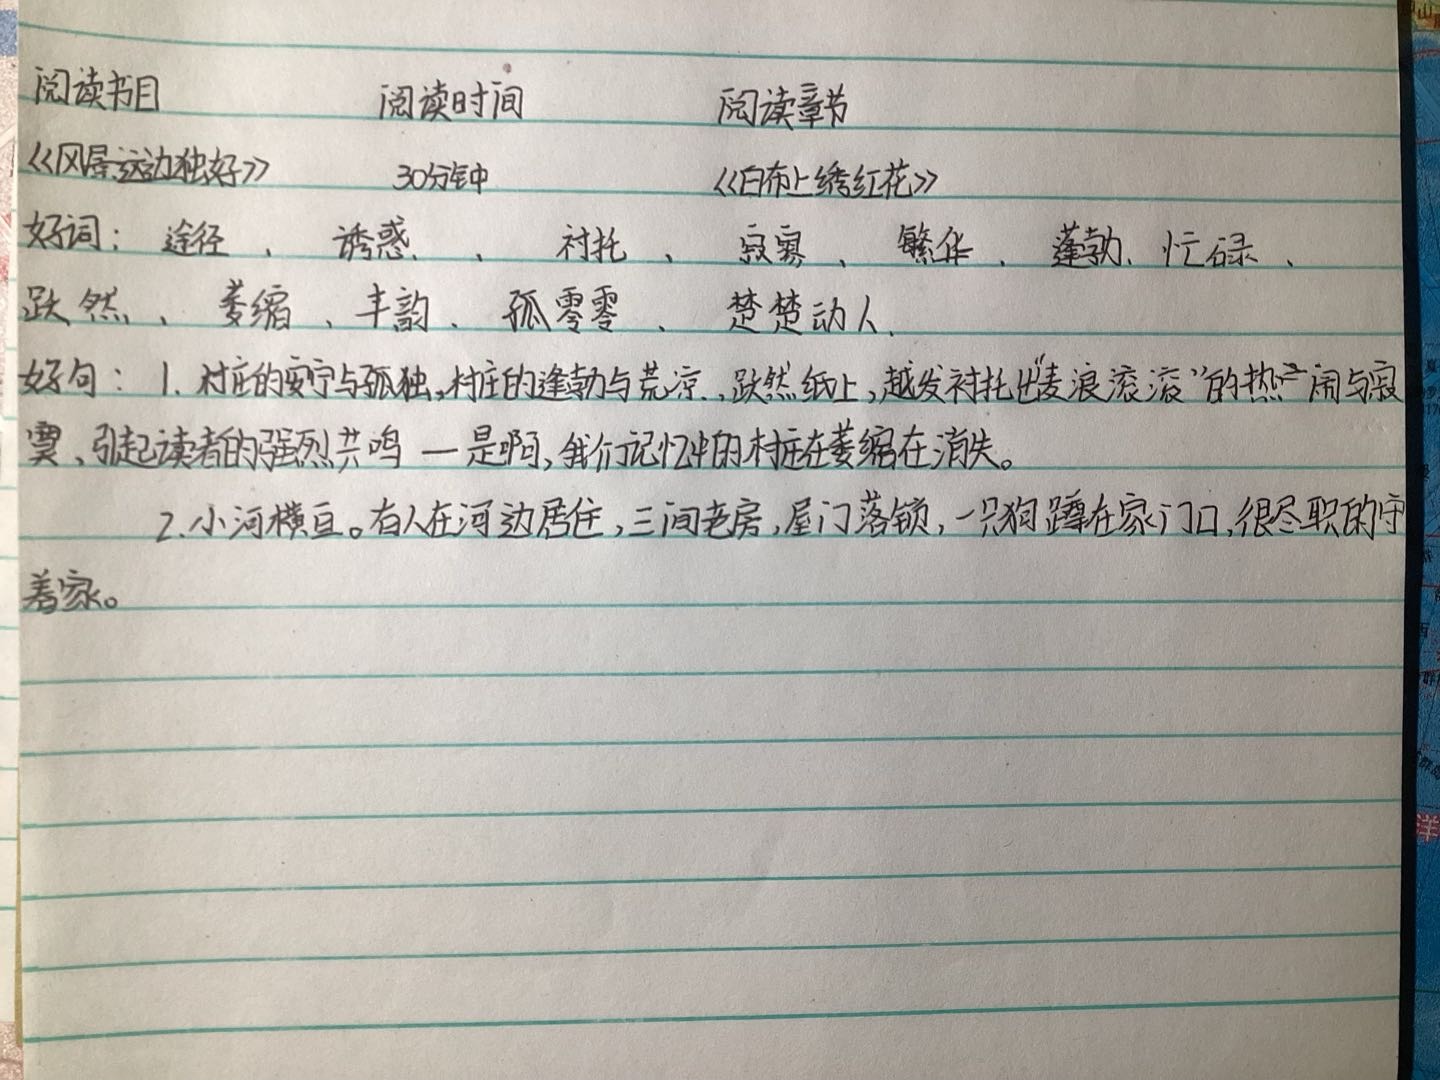 阅读书目 阅读时间 阅读章节
《风景这边独好》 30分钟 《白布上绣红花》
好词：途径、诱惑、、衬托、寂寞、繁华、蓬勃、忙碌、
跃然、萎缩、丰韵、孤零零、楚楚动人、
好句：1.村庄的安宁与孤独，村庄的逢勃与荒凉，跃然纸上，越发衬托出“麦浪滚滚”的热闹与寂
寞、引起读者的强烈共鸣—是啊，我们记忆中的村庄在萎缩在消失。
2.小河横亘。有人在河边居住，三间老房，屋门落锁，一只狗蹲在家门口，很尽职的守
着家。
洋